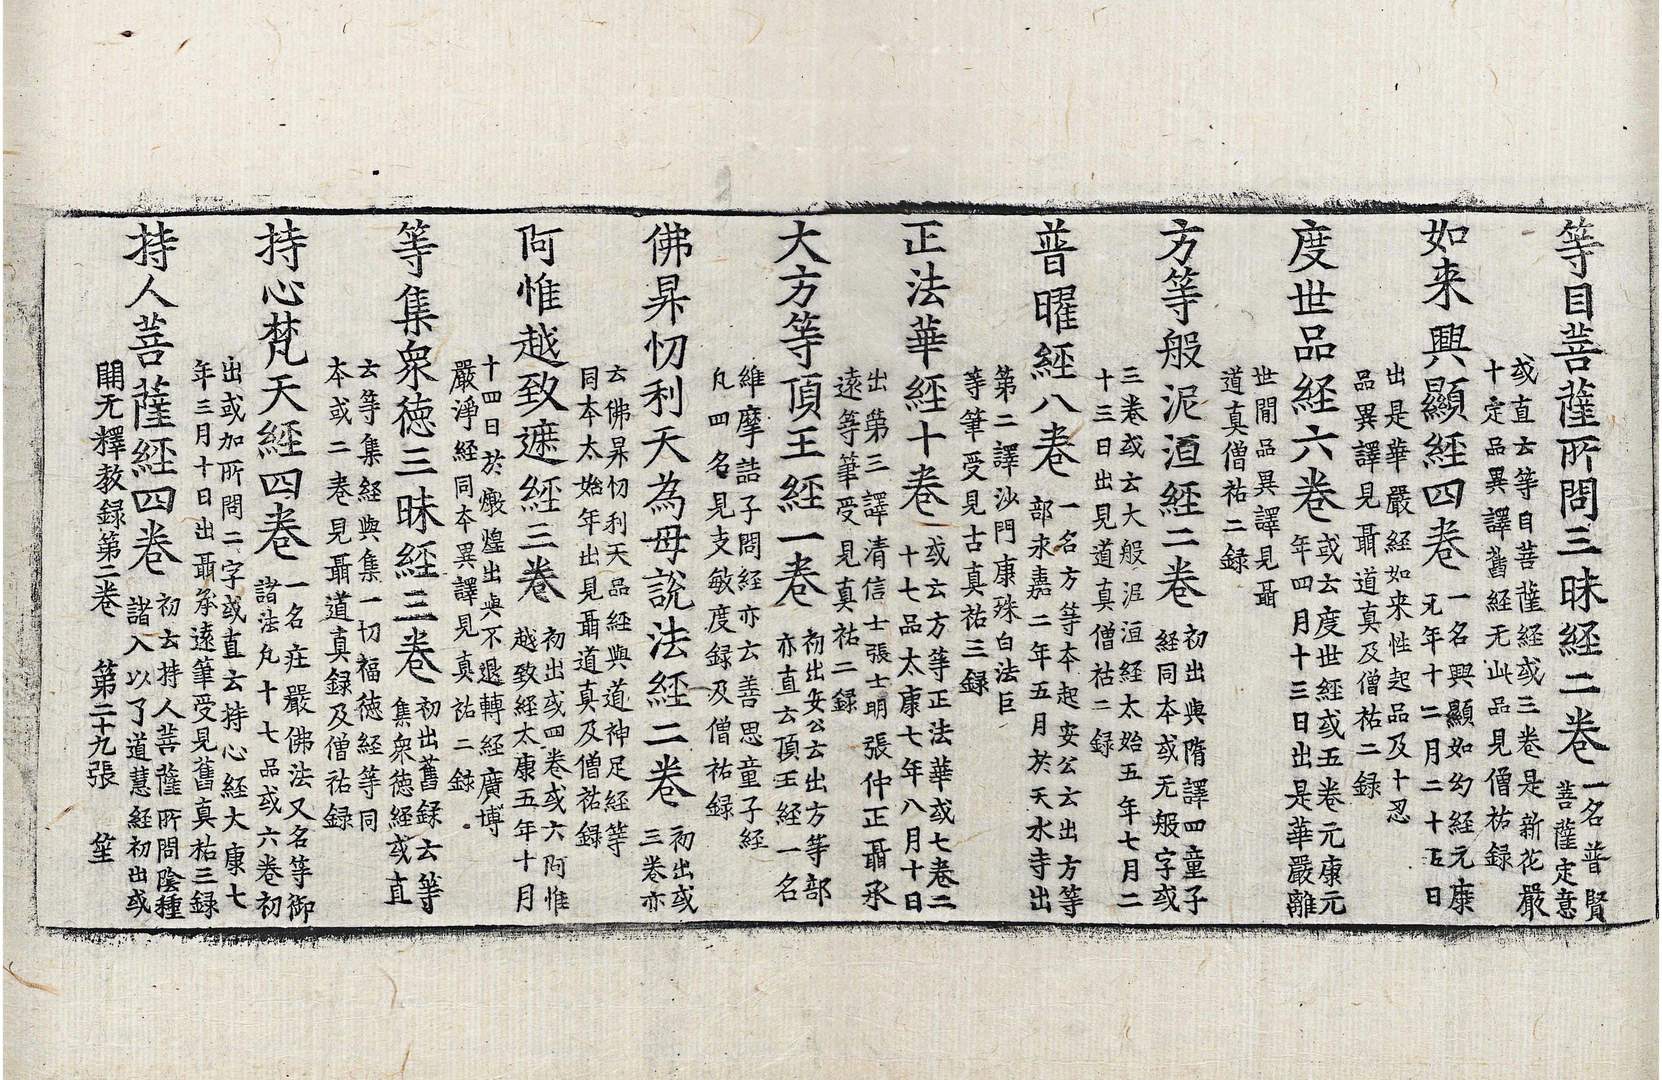 等目菩薩所問三昧経二巻
一名普賢
菩薩定意
或直云等目菩薩経或三巻是新花嚴
十定品異譯舊経无此品見僧祐録
如来興顯経四巻
一名興顯如幻経元康
元年十二月二十五日
出是華嚴経如来性起品及十忍
品異譯見聶道真及僧祐二録
度世品経六巻
或云度世経或五巻元康元
年四月十三日出是華嚴離
世間品異譯見聶
道真僧祐二録
方等般泥洹経二巻
初出與隋譯四童子
経同本或无般字或
三巻或云大般泥洹経太始五年七月二
十三日出見道真僧祐二録
普曜経八巻
一名方等本起安公云出方等
部永嘉二年五月於天水寺出
第二譯沙門康殊白法巨
等筆受見古真祐三録
正法華経十巻
或云方等正法華或七巻二
十七品太康七年八月十日
出第三譯清信士張士明張仲正聶承
遠等筆受見真祐二録
大方等頂王経一巻
初出安公云出方等部
亦直云頂王経一名
維摩詰子問経亦云善思童子経
凡四名見支敏度録及僧祐録
佛昇忉利天為母說法経二巻
初出或
三巻亦
云佛昇忉利天品経與道神足経等
同本太始年出見聶道真及僧祐録
阿惟越致遮経三巻
初出或四巻或六阿惟
越致経太康五年十月
十四日於燉煌出與不退轉経廣博
嚴淨経同本異譯見真祐二録
等集衆徳三昧経三巻
初出舊録云等
集衆徳経或直
云等集経與集一切福徳経等同
本或二巻見聶道真録及僧祐録
持心梵天経四巻
一名莊嚴佛法又名等御
諸法凡十七品或六巻初
出或加所問二字或直云持心経大康七
年三月十日出聶承遠筆受見舊真祐三録
持人菩薩経四巻
初云持人菩薩所問陰種
諸入以了道慧経初出或
開元釋教録第二巻 第二十九張 笙